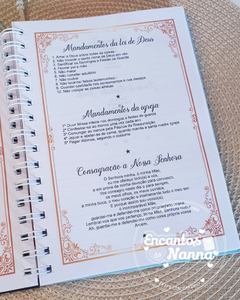 Mandamentos da lei de Deus
1. Amar a Deus sobre todas as coisas
2. Não invocar o santo nome de Deus em vão
3. Santificar os Domingos e Festas de Guarda
4. Honrar pai e mãe
5. Não matar
6. Não cometer adultério
7. Não roubar
8. Não levantar falsos testemunhos
9. Guardar castidade nos pensamentos e nos desejos
10. Não cobiçar as coisas alheias
Mandamentos da igreja
1° Ouvir Missa inteira nos domingos e festas de guarda
2° Confessar-se ao menos uma vez cada ano
3° Comungar ao menos pela Páscoa da Ressurreição
4° Jejuar e abster-se de carne, quando manda a santa madre igreja
5° Pagar dízimos, segundo o costume
Consagração a Nossa Senhora
Ó Senhora minha, ó minha Mãe,
eu me ofereço todo(a) a vós,
e em prova da minha devoção para convosco,
vos consagro neste dia e para sempre,
os meus olhos, os meus ouvidos,
a minha boca, o meu coração e inteiramente todo o meu ser.
E porque assim sou vosso(a),
ó incomparável Mãe,
guardai-me e defendei-me como propriedade vossa.
Lembrai-vos que vos pertenço, terna Mãe, Senhora nossa.
Ah, guardai-me e defendei-me como coisa própria vossa.
Amém.
Encantos
Nanna